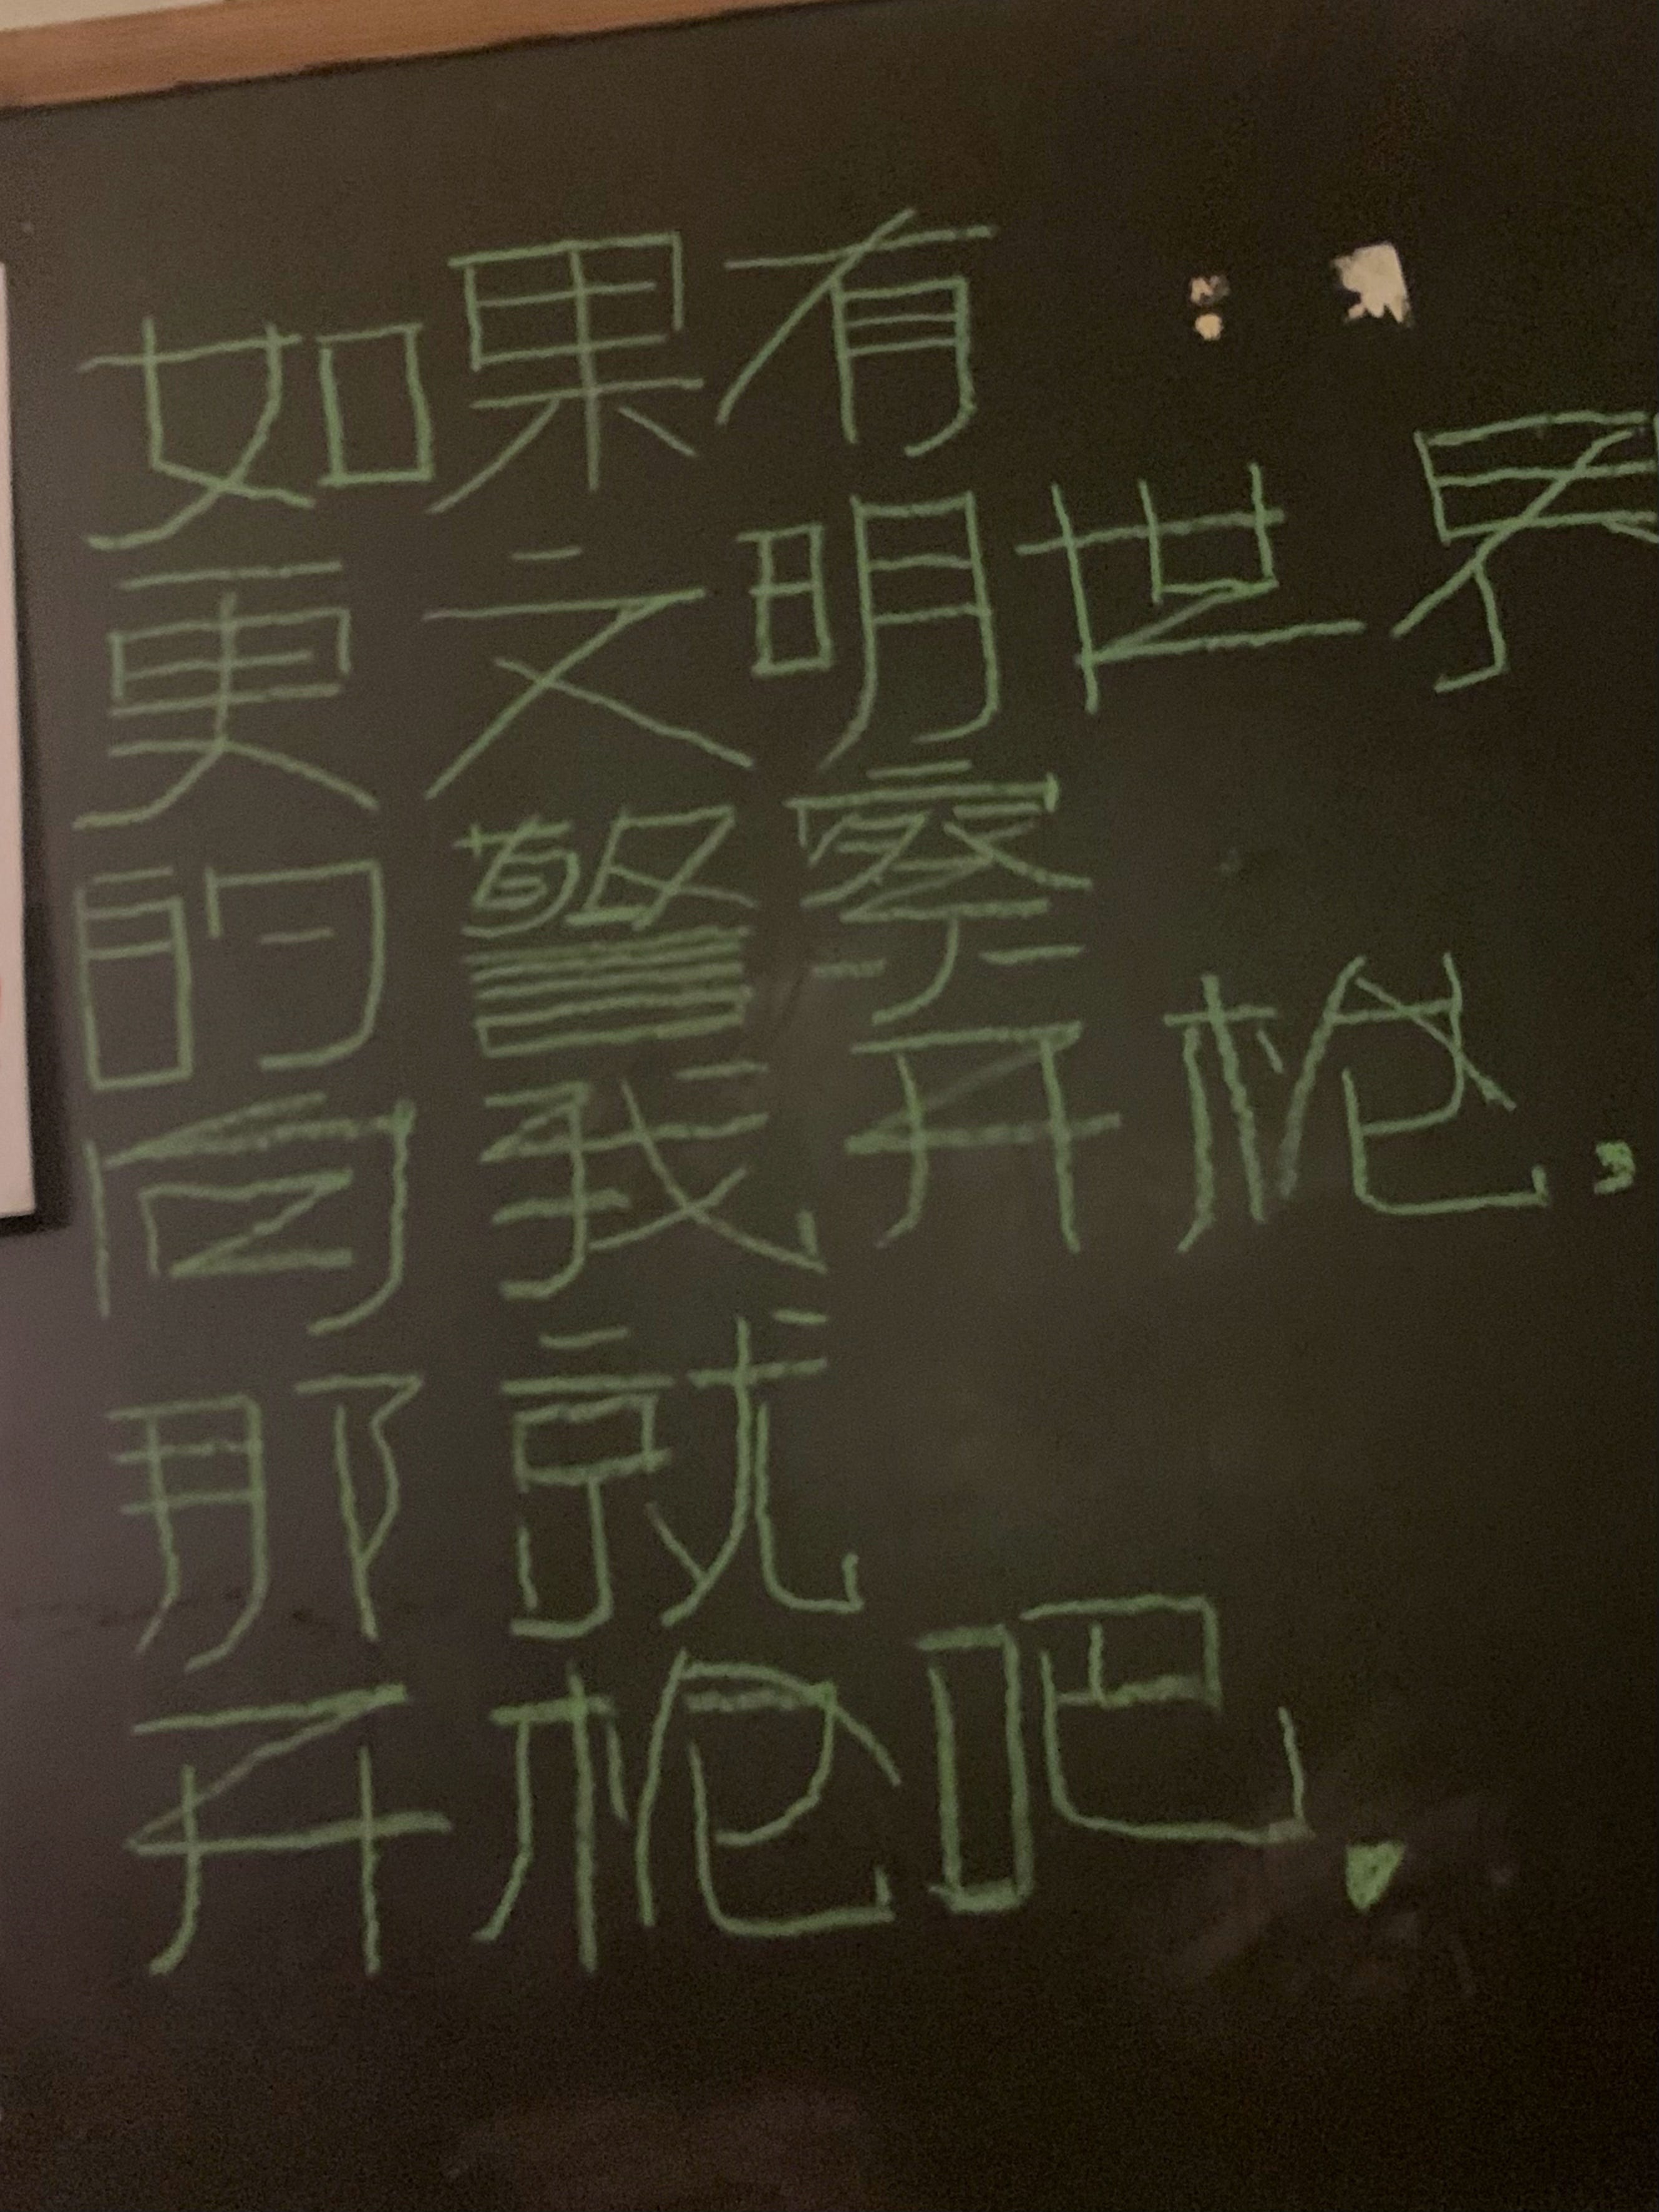 如果有
更文明世界
的警察
向我开枪.
那就
开枪吧.